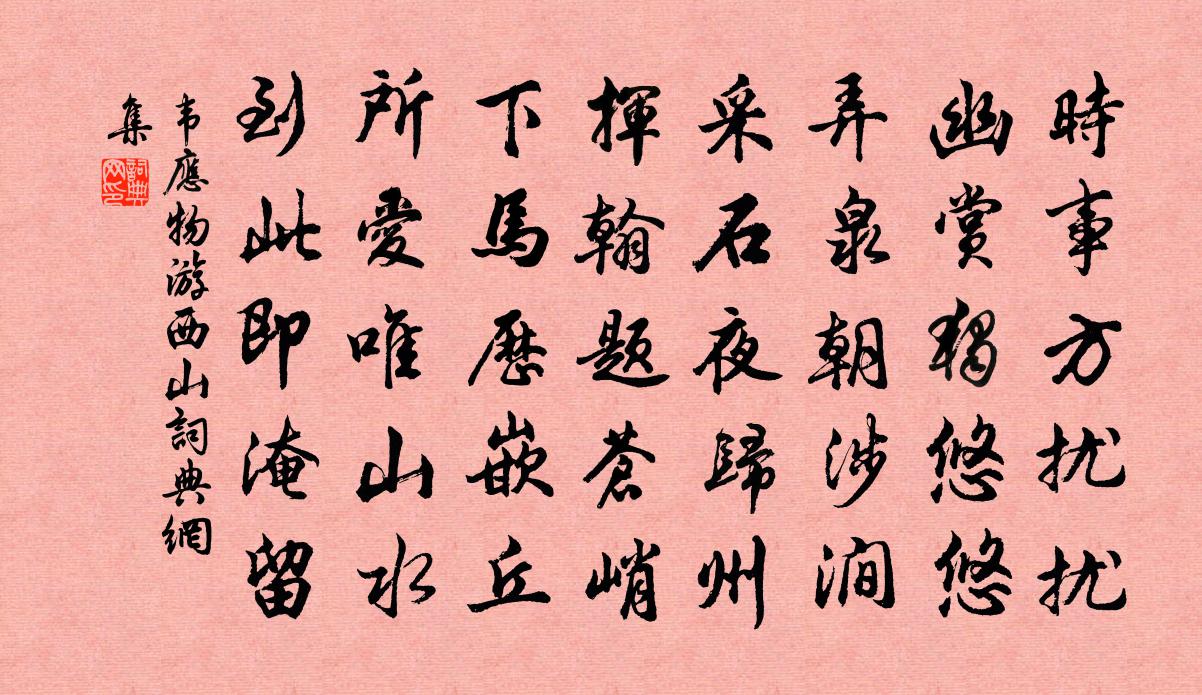 時事方扰扰
幽赏獨悠悠
弄泉朝涉澗
采石夜歸州
揮翰題蒼峭
下馬歷嵌丘
所愛唯山水
到此即淹留
韦應物游西山詞典網
集
詞典网印